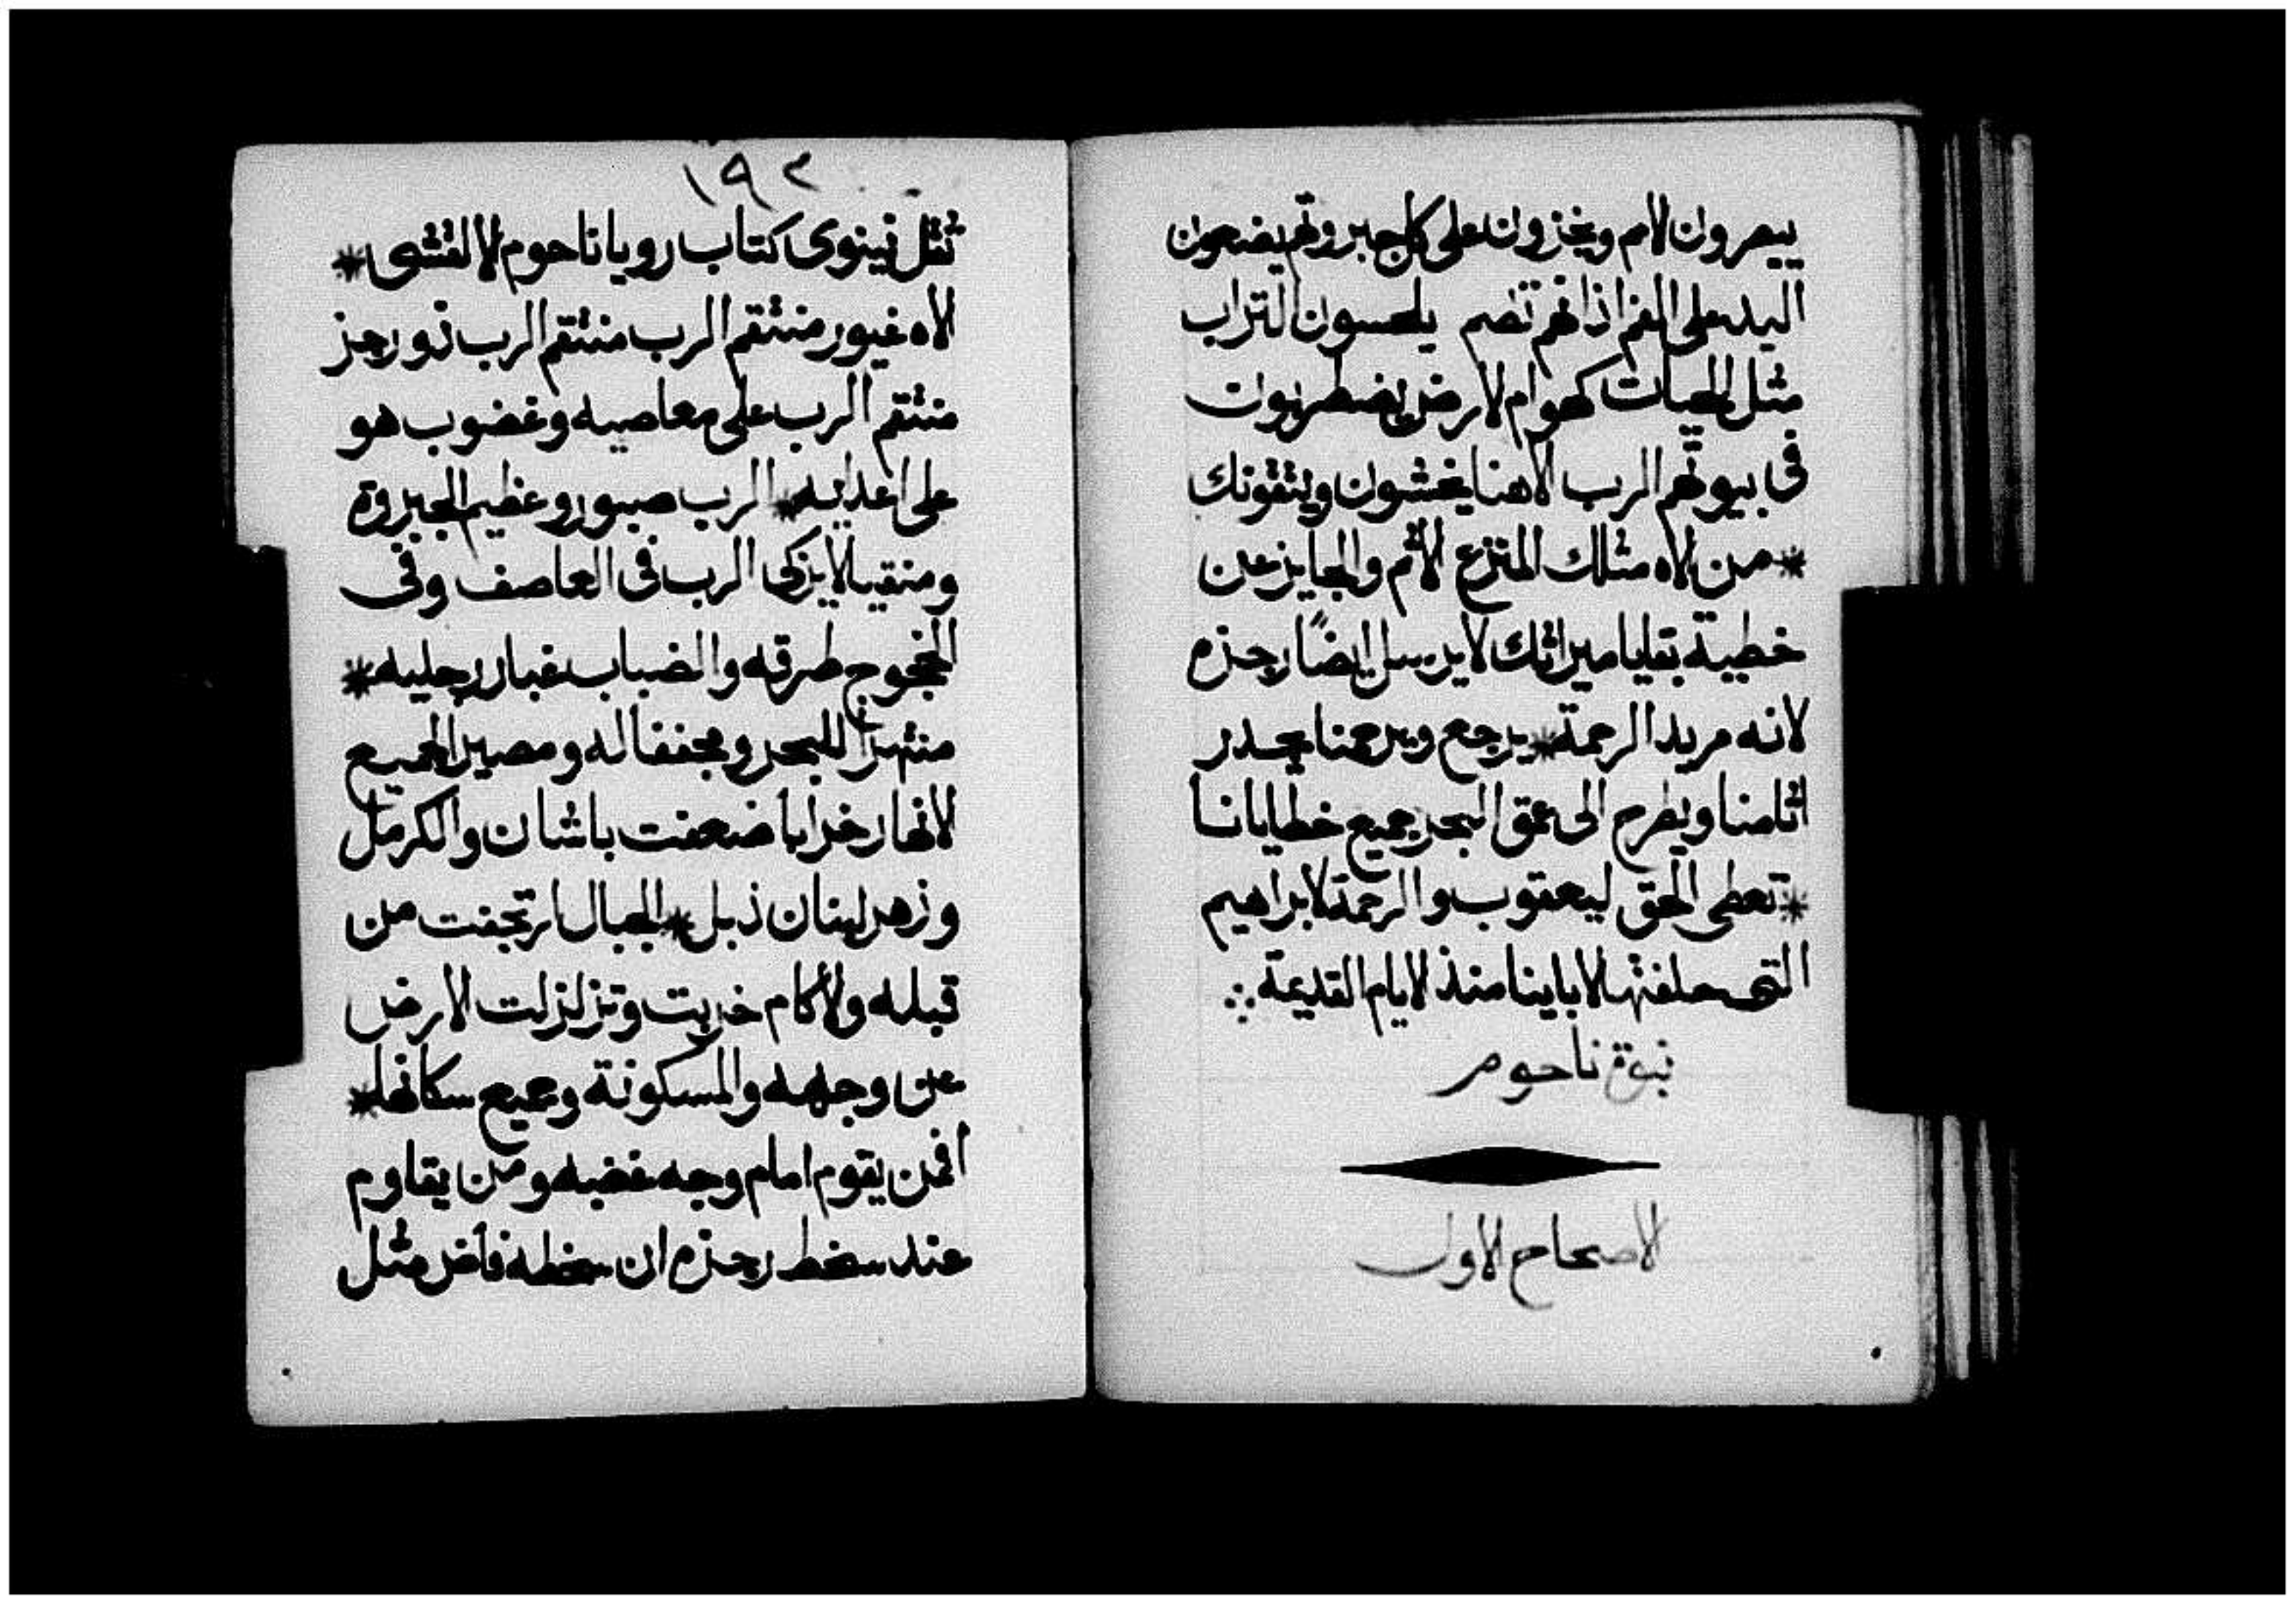 يبصرون الامم ويخزون على كل جبروتهم يضعون
اليد على الفم اذانهم تصم يلحسون التراب
مثل الحيات كهوام الارض يضطربون
فى بيوتهم الرب الاهنا يخشون ويتقونك
* من الاه مثلك المنزع الاثم والجايز عن
خطية بقايا ميراثك لا يرسل ايضًا رجزه
لانه مريد الرحمة * يرجع ويرحمنا يحدر
اثامنا ويطرح الى عمق البحر جميع خطايانا
* تعطى الحق ليعقوب والرحمة لابراهيم
التى حلفتها لاباينا منذ الايام القديمة ∴
نبوة ناحوم
الاصحاح الاول
١٩٢
ثقل نينوى كتاب رويا ناحوم الالقشى *
الاه غيور منتقم الرب منتقم الرب ذو رجز
منتقم الرب على معاصيه وغضوب هو
على اعدايه * الرب صبور وعظيم الجبروة
ومنقيا لا يزكى الرب فى العاصف وفى
الخجوج طرقه والضباب غبار رجليه *
منتهرا للبحر ومجففا له ومصيرا لجميع
الانهار خرابا ضعفت باشان والكرمل
وزهر لبنان ذبل * الجبال ارتجفت من
قبله والاكام خربت وتزلزلت الارض
عن وجهه والمسكونة وجميع سكانها *
افمن يقوم امام وجه غضبه ومن يقاوم
عند سخط رجزه ان سخطه فأض مثل